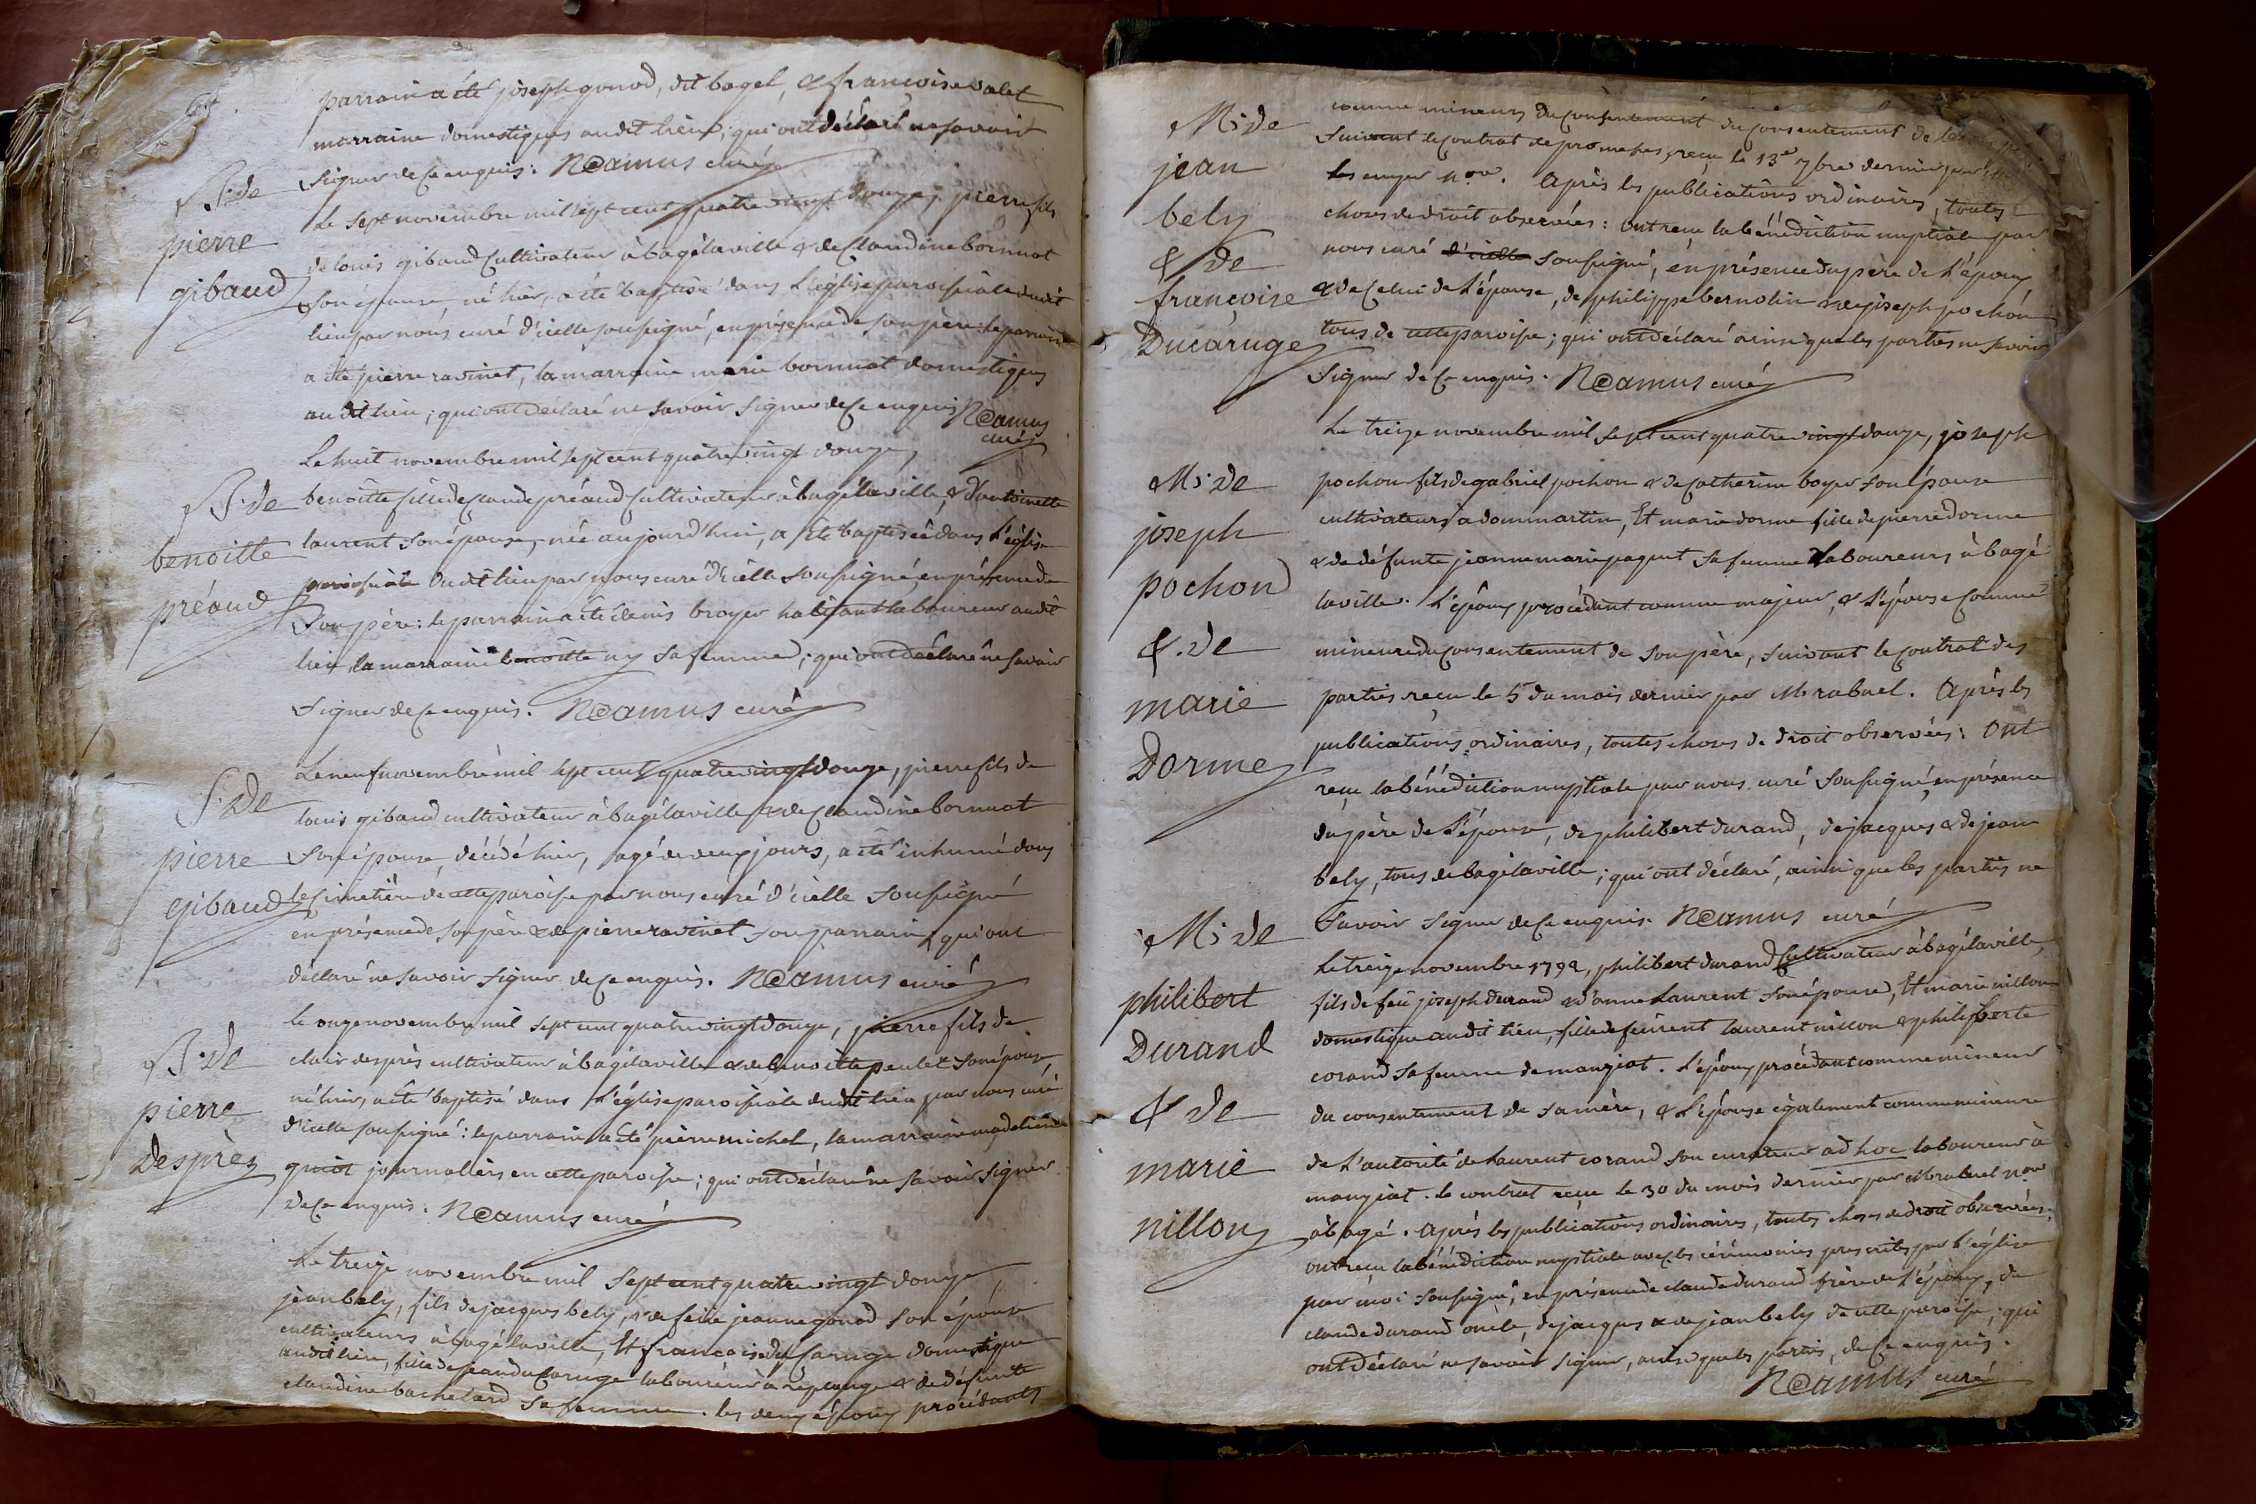 parrain a été joseph gonod, dit bagel, & françoise valet
marraine domestiques audit lieu; qui ont déclaré ne savoir
signer de ce enquis. Neamus curé
B. de
pierre
gibaud
Le sept novembre mil sept cent quatre vingt douze, pierre fils
de louis gibaud cultivateur à bagélaville & de Claudine bornuat
son épouse, né hier, a été baptisé dans l'église paroissiale dudit
lieu par nous curé d'icelle soussigné, en présence de son père: le parrain
a été pierre ravinet, la marraine marie bornuat domestiques
audit lieu; qui ont déclaré ne savoir signer de ce enquis Neamus
curé
B. de
benoitte
préaud
Le huit novembre mil sept cent quatre vingt douze,
benoitte fille de Claude préaud cultivateur à bagélaville, & d'antoinette
laurent son épouse, née aujourd'hui, a été baptisée dans l'église
paroissiale dudit lieu par nous curé d'icelle soussigné, en présence de
son père: le parrain a été denis broyer habitant laboureur audit
lieu, la marraine benoitte ny sa femme; qui ont déclaré ne savoir
signer de ce enquis. Neamus curé
S. de
pierre
gibaud
Le neuf novembre mil sept cent quatre vingt douze, pierre fils de
louis gibaud cultivateur à bagélaville & de Claudine bornuat
son épouse, décédé hier, agé de deux jours, a été inhumé dans
le Cimetière de cette paroisse par nous curé d'icelle soussigné
en présence de son père & de pierre ravinet son parrain, qui ont
déclaré ne savoir signer de ce enquis. Neamus curé
B. de
pierre
desprèz
le onze novembre mil sept cent quatre vingt douze, pierre fils de
clair desprès cultivateur à bagélaville & de benoitte peulet son épouse
né hier, a été baptisé dans l'église paroissiale dudit lieu par nous curé
d'icelle soussigné: le parrain a été pierre michel, la marraine madeleine
guiot journaliers en cette paroisse; qui ont déclaré ne savoir signer
de ce enquis. Neamus curé
Le treize novembre mil sept cent quatre vingt douze
jean bely, fils de jacques bely, & de feüe jeanne gonod son épouse
cultivateurs à bagélaville, Et françoise du Caruge domestique
audit lieu, fille de jean du Caruge laboureur à replonge & de défunte
claudine bachelard sa femme. les deux époux procédants
M. de
jean
bely
& de
françoise
Ducaruge
comme mineurs du consentement du consentement de
suivant le contrat de promesses, reçu le 13e 7bre dernier par
nore. Après les publications ordinaires, toutes
choses de droit observées: Ont reçu la bénédiction nuptiale par
nous curé d'icelle soussigné, en présence du père de l'époux
& de Celui de l'épouse, de philippe bernolin & de joseph pochon
tous de cette paroisse; qui ont déclaré ainsi que les parties ne savoir
signer de ce enquis. Neamus curé
M. de
joseph
pochon
& de
marie
Dorme
Le treize novembre mil sept cent quatre vingt douze, joseph
pochon fils de gabriel pochon & de Catherine boyer son épouse
cultivateurs a dommartin, Et marie dorme fille de pierre dorme
& de défunte jeanne marie paquet sa femme laboureurs à bagé
laville. l'époux procédant comme majeur, & l'épouse comme
mineure du consentement de son père, suivant le contrat des
parties reçu le 5 du mois dernier par Mr abuel. Après les
publications ordinaires, toutes choses de droit observées: Ont
reçu la bénédiction nuptiale par nous curé soussigné, en présence
du père de l'épouse, de philibert durand, de jacques & de jean
bely, tous de bagélaville; qui ont déclaré, ainsi que les parties ne
savoir signer de ce enquis. Neamus curé
M. de
philibert
Durand
& de
marie
nillon
Le treize novembre 1792, philibert durand Cultivateur à bagélaville,
fils de feu joseph durand & d'anne Laurent son épouse, Et marie nillon
domestique audit lieu, fille de feurent laurent nillon & philiberte
corand sa femme de manziat. l'époux procédant comme mineur
du consentement de sa mère, & l'épouse également comme mineure
de l'autorité de laurent corand son curateur ad hoc laboureur à
manziat. le contrat reçu le 30 du mois dernier par Mrabuel nore
à bagé. Après les publications ordinaires, toutes choses de droit observées,
ont reçu la bénédiction nuptiale avec les cérémonies prescrites par l'église
par moi soussigné, en présence de claude durand frère de l'époux, de
claude durand oncle, de jacques & de jean bely de cette paroisse; qui
ont déclaré ne savoir signer, ainsi que les parties, de ce enquis.
Neamus curé